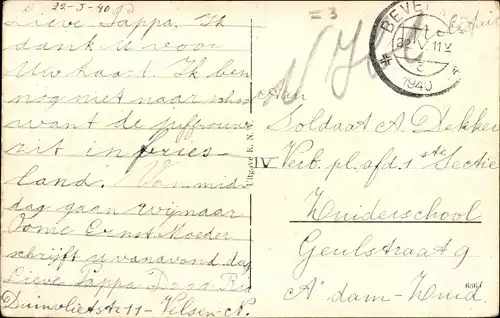 22-5-40
Lieve Pappa. Ik
dank U voor
Uw kaart. Ik ben
nog niet naar school
want de juffrouw
zit in fries-
land. Vanmid
dag gaan wij naar
Oome Ernst Moeder
schrijft u vanavond dag
Lieve Pappa Dag
Duinvlietstr 11 - Velsen-N.
= 3
BEVE
22.V.11V
1940
Aan
Soldaat A. Dekker
IV Verb. pl. afd. 1ste Sectie
Zuiderschool
Geulstraat 9
A'dam-Zuid.
Uitgave R. N.